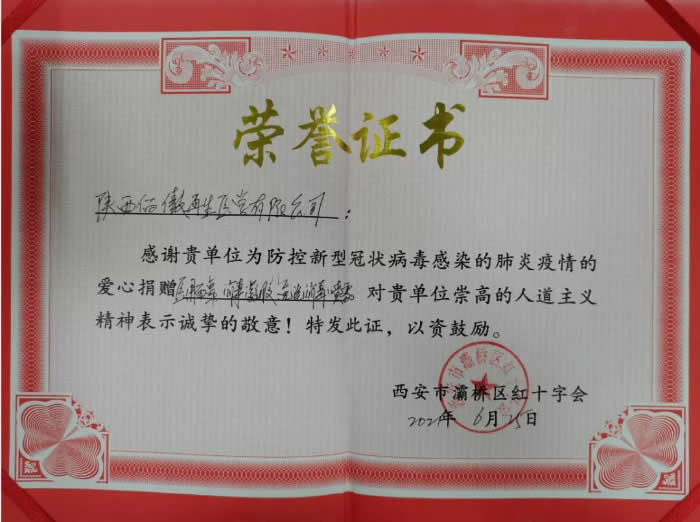 荣誉证书
陕西佰傲再生医学有限公司：
感谢贵单位为防控新型冠状病毒感染的肺炎疫情的
爱心捐赠 对贵单位崇高的人道主义
精神表示诚挚的敬意！特发此证，以资鼓励。
西安市灞桥区红十字会
2021年6月25日